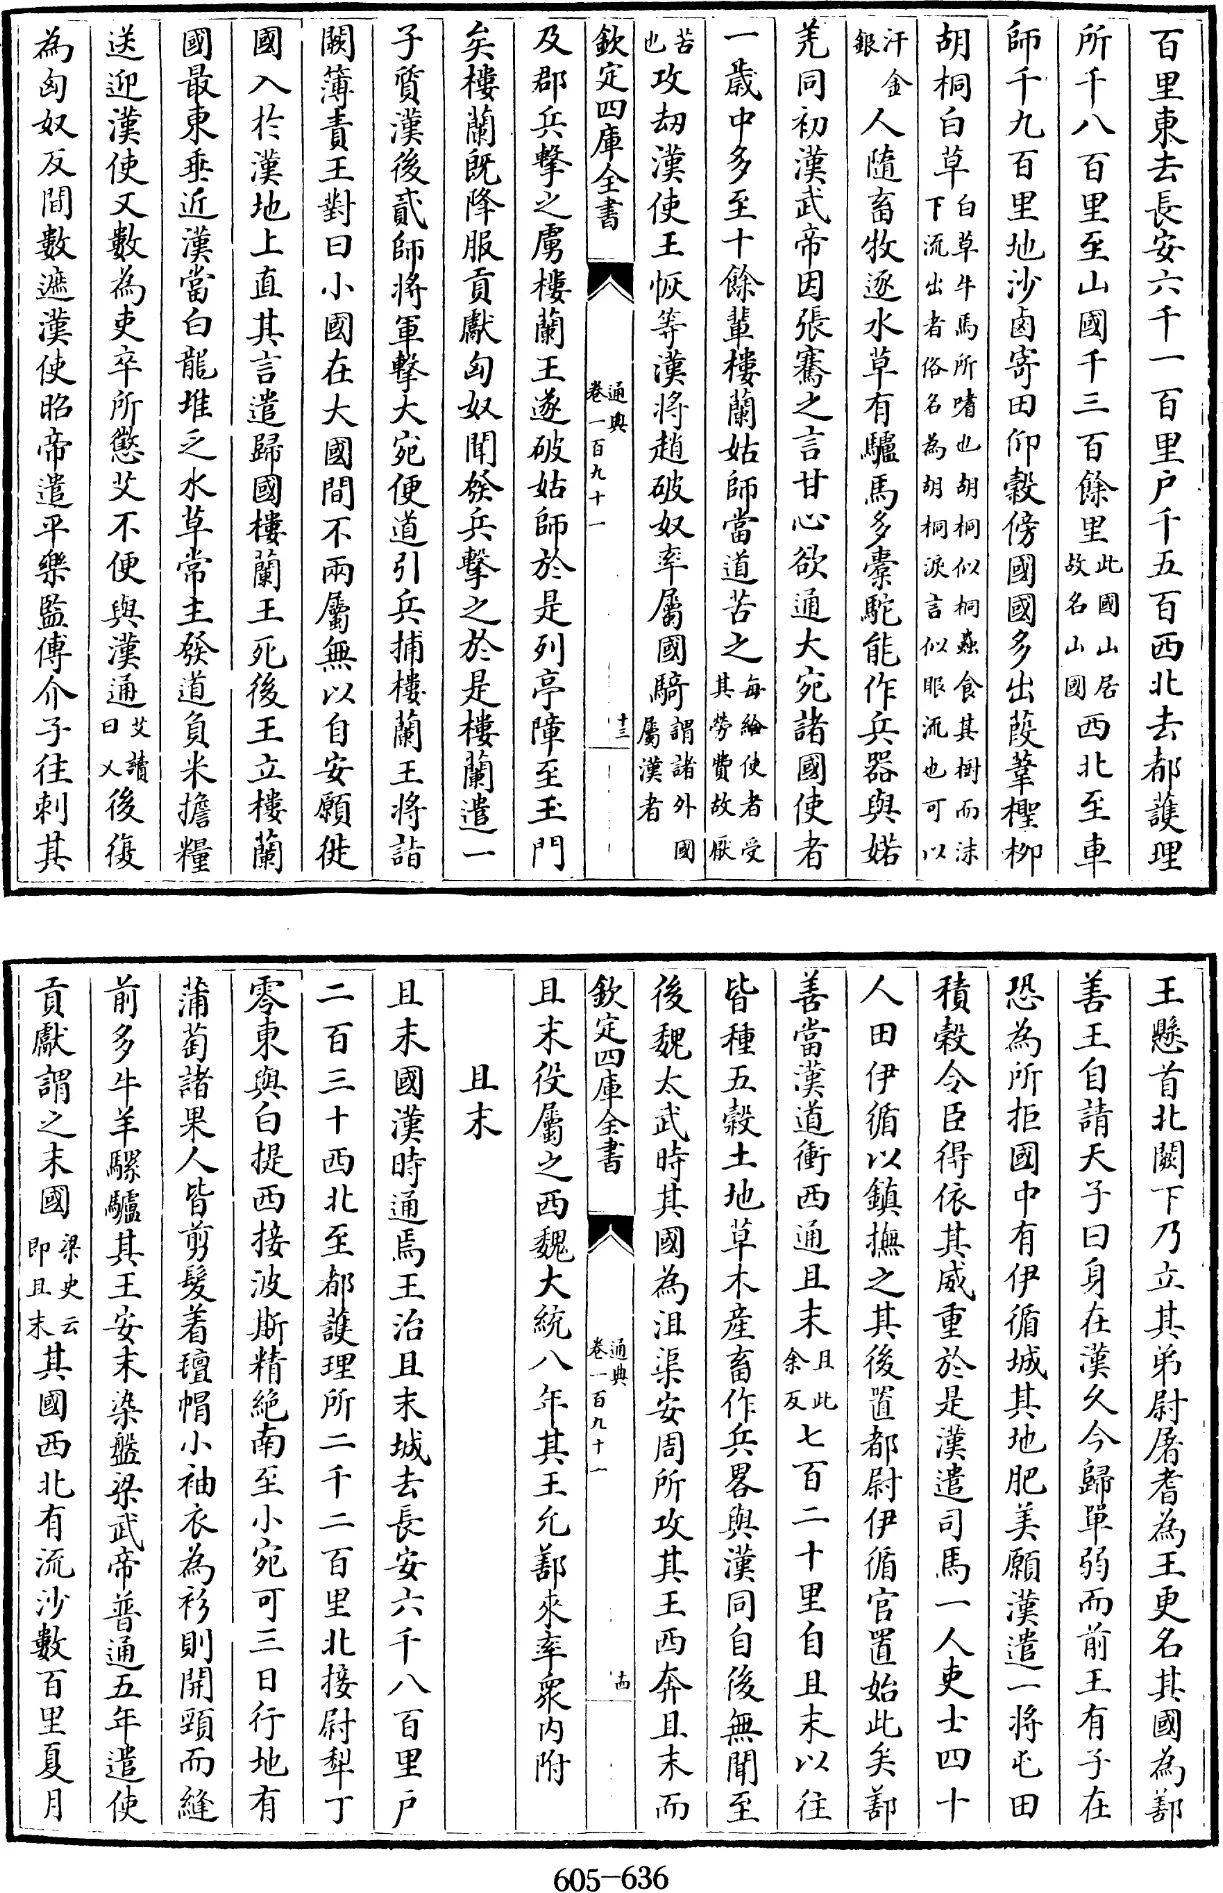 百里東去長安六千一百里户千五百西北去都護理
所千八百里至山國千三百餘里此國山居故名山國西北至車
師千九百里地沙鹵寄田仰穀傍國國多出葭葦檉柳
胡桐白草白草牛馬所嗜也胡桐似桐蟲食其樹而沫下流出者俗名為胡桐淚言似眼流也可以
汗金銀人隨畜牧逐水草有驢馬多橐駝能作兵器與婼
羌同初漢武帝因張騫之言甘心欲通大宛諸國使者
一歲中多至十餘輩樓蘭姑師當道苦之每給使者受其勞費故厭
苦也攻刼漢使王恢等漢將趙破奴率屬國騎謂諸外國屬漢者
欽定四庫全書
通典卷一百九十一
十三
及郡兵擊之虜樓蘭王遂破姑師於是列亭障至玉門
矣樓蘭既降服貢獻匈奴聞發兵擊之於是樓蘭遣一
子質漢後貳師將軍擊大宛便道引兵捕樓蘭王將詣
闕簿責王對曰小國在大國間不兩屬無以自安願徙
國入於漢地上直其言遣歸國樓蘭王死後王立樓蘭
國最東垂近漢當白龍堆乏水草常主發道負米擔糧
送迎漢使又數為吏卒所懲艾不便與漢通艾讀曰乂後復
為匈奴反間數遮漢使昭帝遣平樂監傅介子往刺其
王懸首北闕下乃立其弟尉屠耆為王更名其國為鄯
善王自請天子曰身在漢久今歸單弱而前王有子在
恐為所拒國中有伊循城其地肥美願漢遣一將屯田
積穀令臣得依其威重於是漢遣司馬一人吏士四十
人田伊循以鎮撫之其後置都尉伊循官置始此矣鄯
善當漢道衝西通且末且此余反七百二十里自且末以往
皆種五穀土地草木產畜作兵畧與漢同自後無聞至
後魏太武時其國為沮渠安周所攻其王西奔且末而
欽定四庫全書
通典卷一百九十一
十四
且末役屬之西魏大統八年其王允鄯來率衆内附
且末
且末國漢時通焉王治且末城去長安六千八百里户
二百三十西北至都護理所二千二百里北接尉犁丁
零東與白提西接波斯精絶南至小宛可三日行地有
蒲萄諸果人皆剪髮着氊帽小袖衣為衫則開頸而縫
前多牛羊騾驢其王安末染盤梁武帝普通五年遣使
貢獻謂之末國梁史云即且末其國西北有流沙數百里夏月
605-636